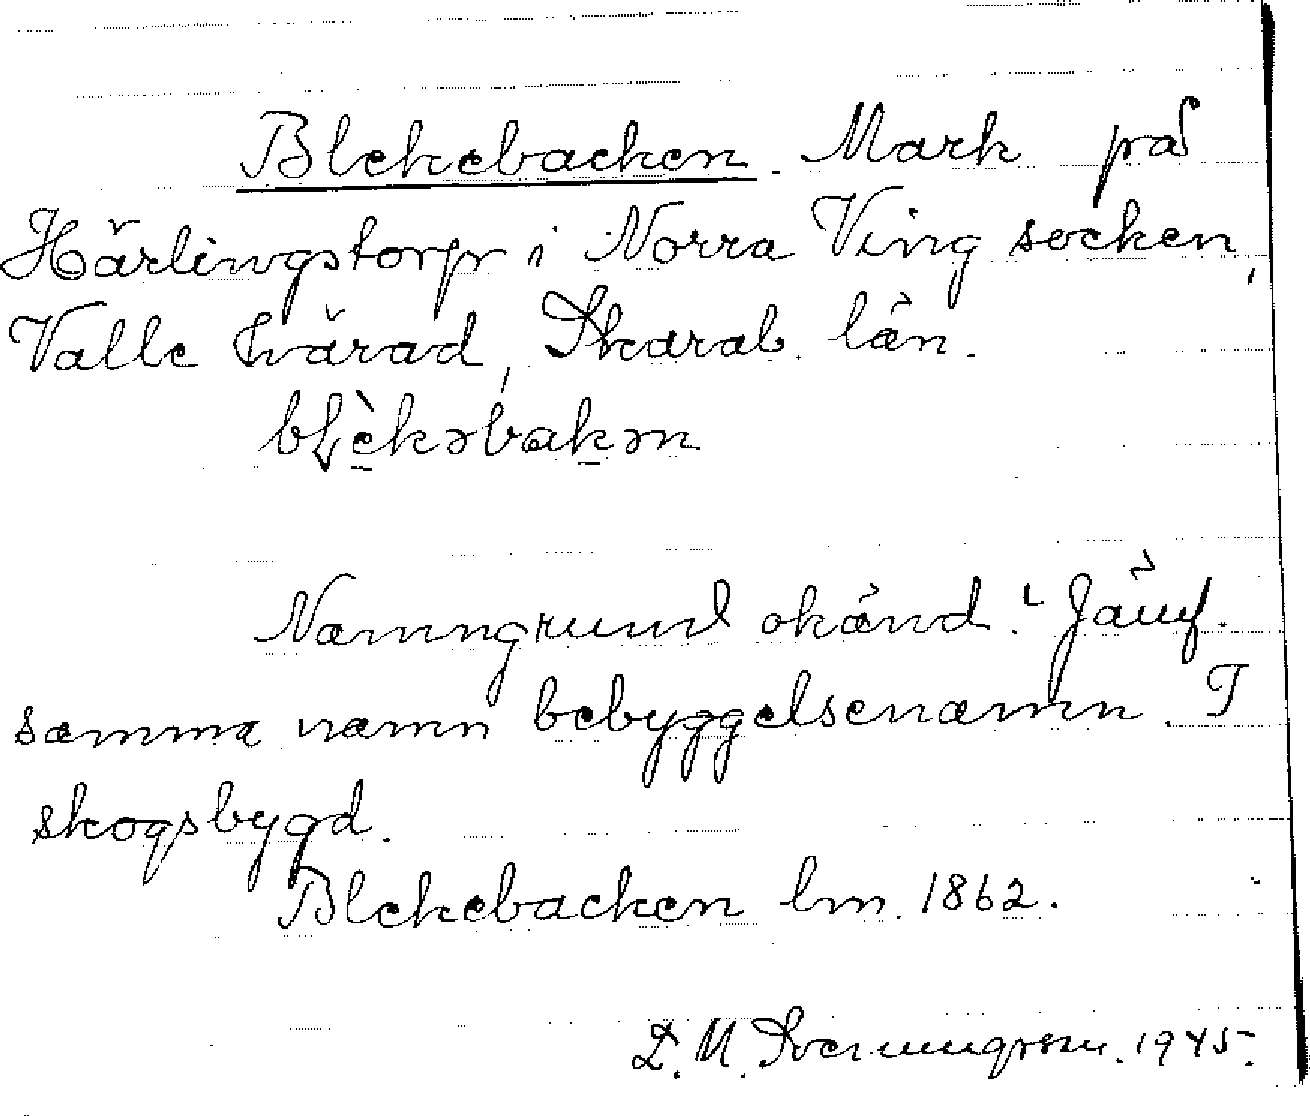 Blekebacken. Mark på
Härlingstorp i Norra Ving socken,
Valle härad, Skarab. län.
bḷe̠̊̀kəbak̠ən
Namngrund okänd. Jämf.
samma namn bebyggelsenamn. I
skogsbygd.
Blekebacken lm. 1862.
D. M. Svenungsson. 1945.